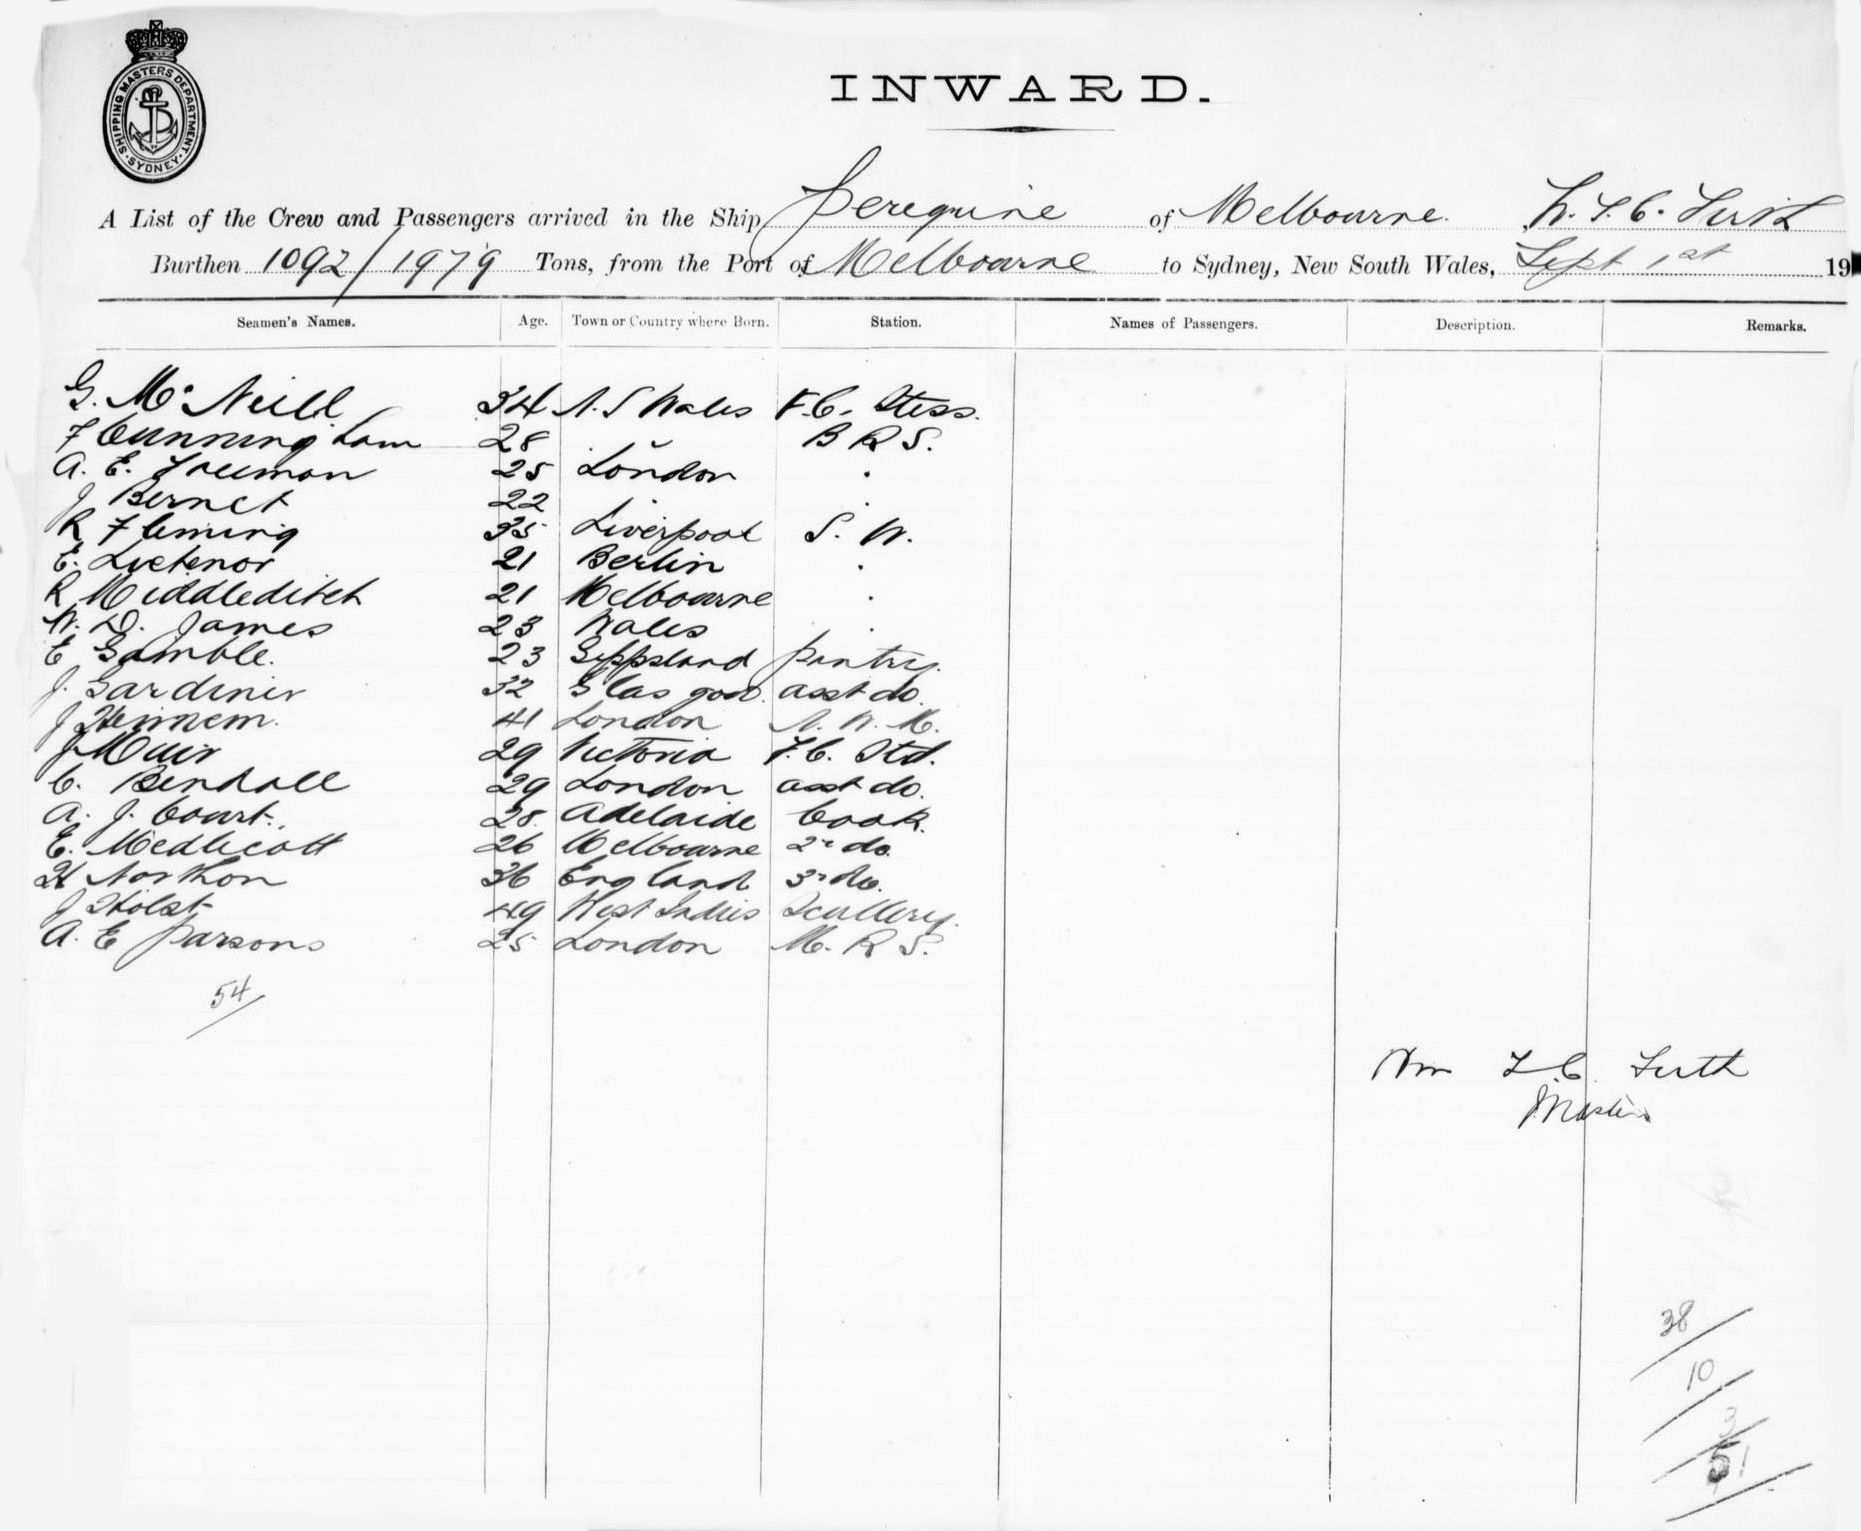 SHIPPING MASTERS DEPARTMENT · SYDNEY ·
INWARD.
A List of the Crew and Passengers arrived in the Ship Peregrine of Melbourne. W. F. C. Firth
Burthen 1092/1979 Tons, from the Port of Melbourne to Sydney, New South Wales, Sept 1st 19
Seamen's Names. Age. Town or Country where Born. Station. Names of Passengers. Description. Remarks.
G. McNeill 34 N. S Wales F. C. Stess.
F Cunningham 28 " B R S.
A. E. Freeman 25 London "
J Bernet 22 " "
R Fleming 35 Liverpool S. W.
E. 21 Berlin "
R Middleditch 21 Melbourne "
W. D. James 23 Wales "
E Gamble. 23 Gippsland pantry.
J. Gardiner 32 Glasgow. asst do.
J 41 London N. W. M.
J. Muir 29 Victoria F. C. Std.
C. Bendall 29 London asst do.
A. J. Court. 28. Adelaide Cook.
E. Medlicott 26 Melbourne 2nd do.
H Northon 36 England 3rd do.
J Holst 49 West Indies Scullery.
A. E Parsons 25 London M. R S.
54/
Wm F. C. Firth
Master
38
10
3
51